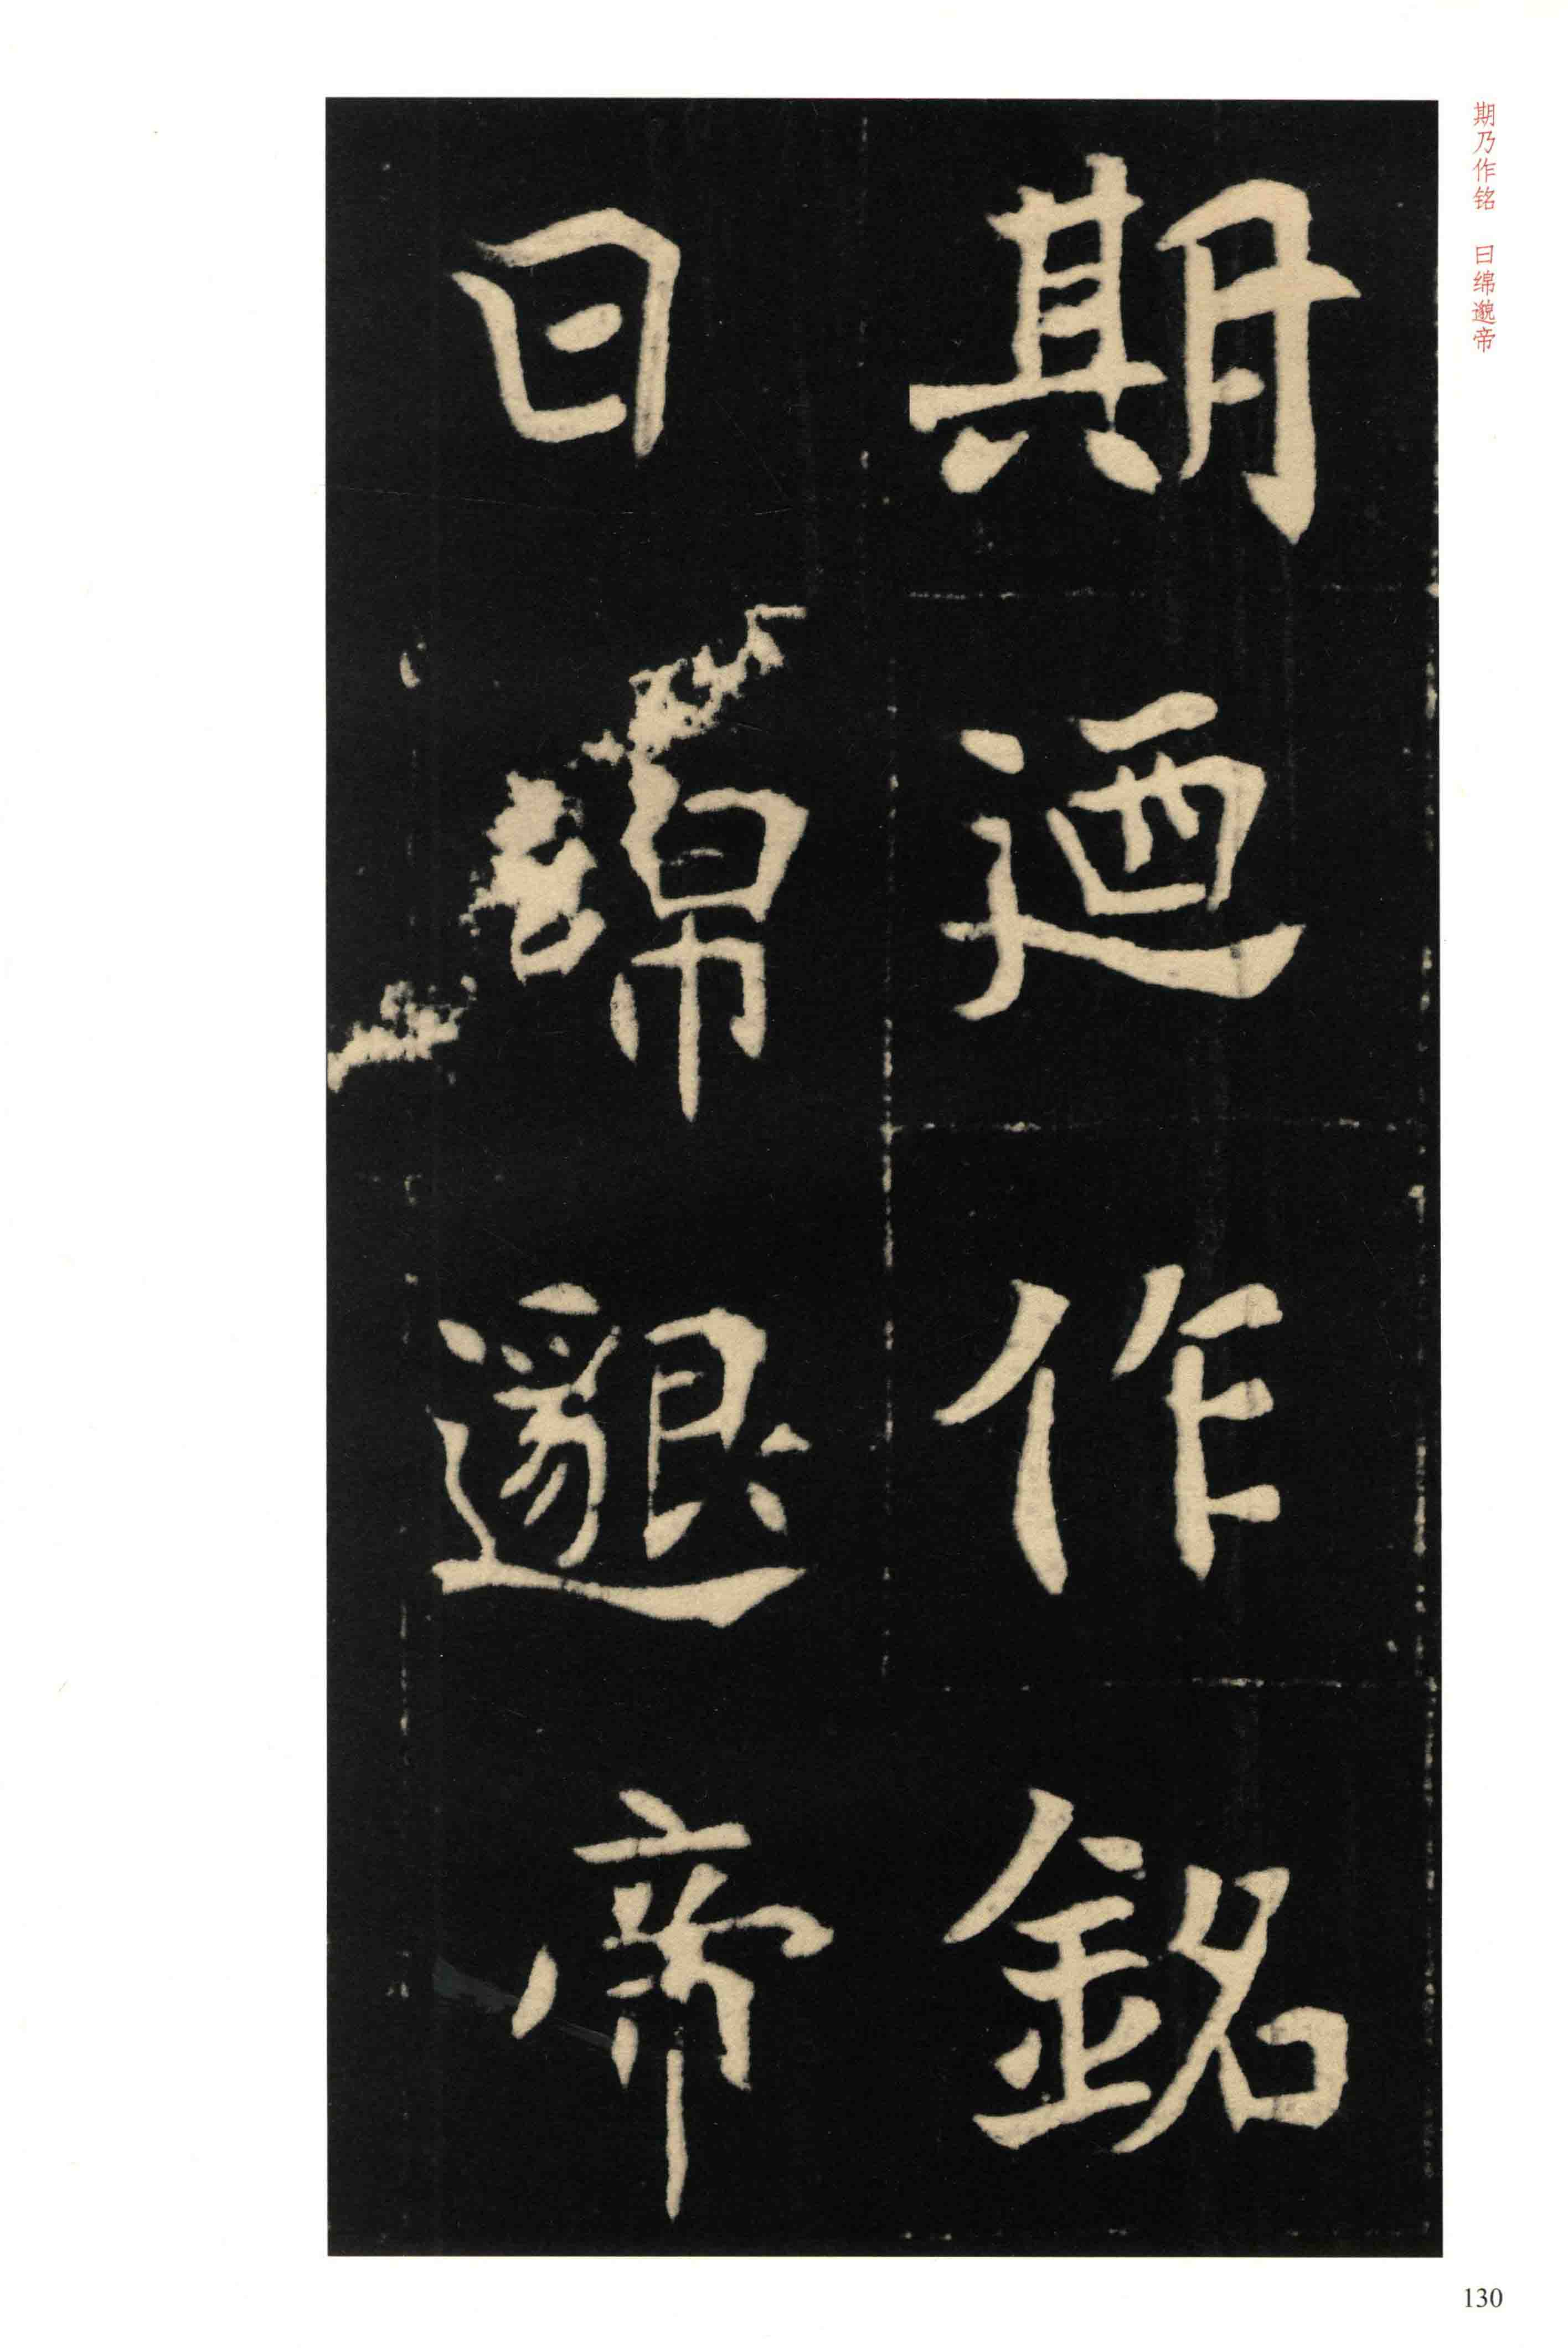 期乃作铭 曰绵邈帝
期迺作銘
曰綿邈帝
130